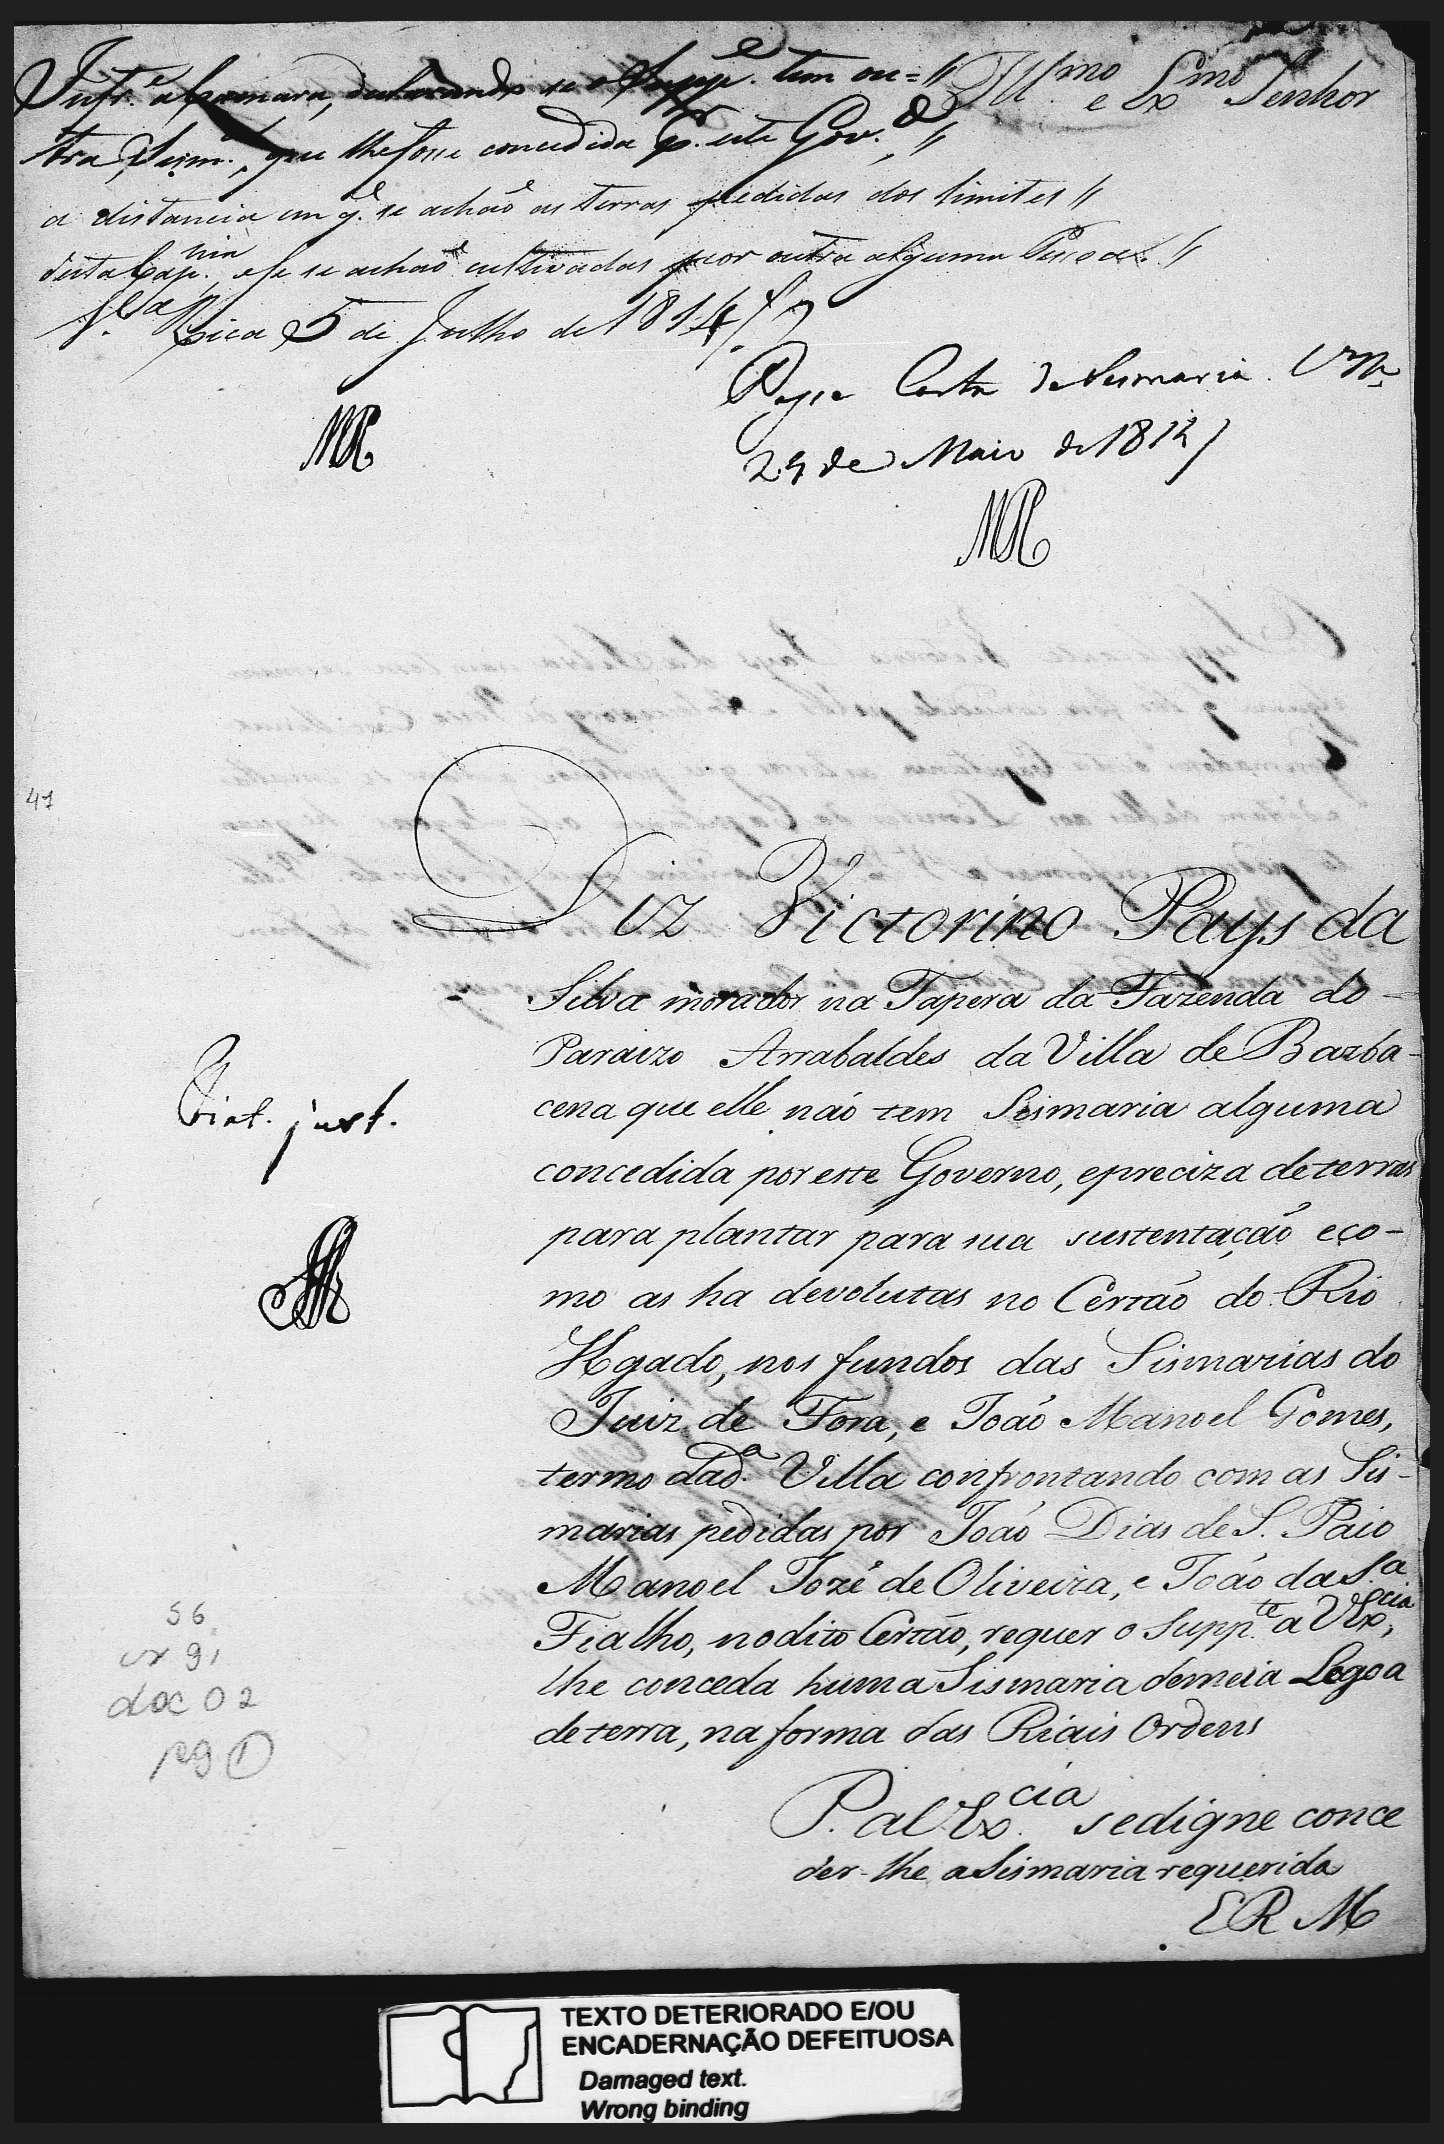 Infr.e a Camara, declarando se o Supp.e tem ou=//
tra Sism.a, que lhe fosse concedida p.r este Gov.o, //
a distancia em q̃ se achaõ as terras pedidas dos limites //
desta Cap.nia, e se se achaõ cultivadas por outra alguma Pessoa. //
V.a Rica 5 de Julho de 1814
MR
Ill.mo e Ex.mo Senhor
Passe Carta de Sismaria. V.a R.a
29 de Maio de 181
MR
41
Diz Victorino Pays da
Silva morador na Tapera da Fazenda do
Paraizo Arrabaldes da Villa de Barba-
cena que elle naõ tem Sismaria alguma
concedida por este Governo, e preciza de terras
para plantar para sua sustentaçaõ e co-
mo as ha devolutas no Certaõ do Rio
Kgado, nos fundos das Sismarias do
Juiz de Fora, e Joaõ Manoel Gomes,
termo da d.a Villa confrontando com as Sis-
marias pedidas por Joaõ Dias de S. Paio
Manoel Jozé de Oliveira, e Joaõ da S.a
Fialho, no dito Certaõ, requer o Supp.te a VEx.cia,
lhe conceda huma Sismaria de meia Legoa
de terra, na forma das Riais Ordens
P. a VEx.cia se digne conce
der-lhe a Sismaria requerida
E R M
just.
56
cx 91
doc 02
pg 1
TEXTO DETERIORADO E/OU
ENCADERNAÇÃO DEFEITUOSA
Damaged text.
Wrong binding